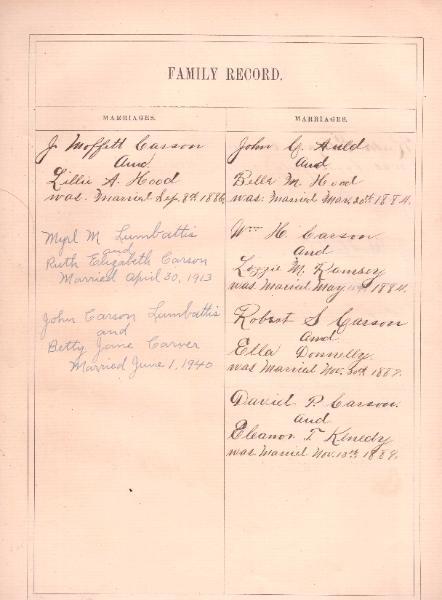 FAMILY RECORD.
MARRIAGES.
J Moffett Carson
And
Lillie A. Hood
was Married Sep. 8th 1886
Myrl M. Lumbattis
and
Ruth Elizabeth Carson
Married April 30, 1913
John Carson Lumbattis
and
Betty Jane Carver
Married June 1, 1940
MARRIAGES.
John G. Auld
And
Bella M. Hood
was Married Mar. 20th 1884.
Wm H. Carson
And
Lizzie M. Ramsey
was Married May 1884.
Robert S Carson
And
Ella Donnelly
was Married Nov. 1887.
David P. Carson.
And
Eleanor T Kenedy
was Married Nov. 13th 1889.